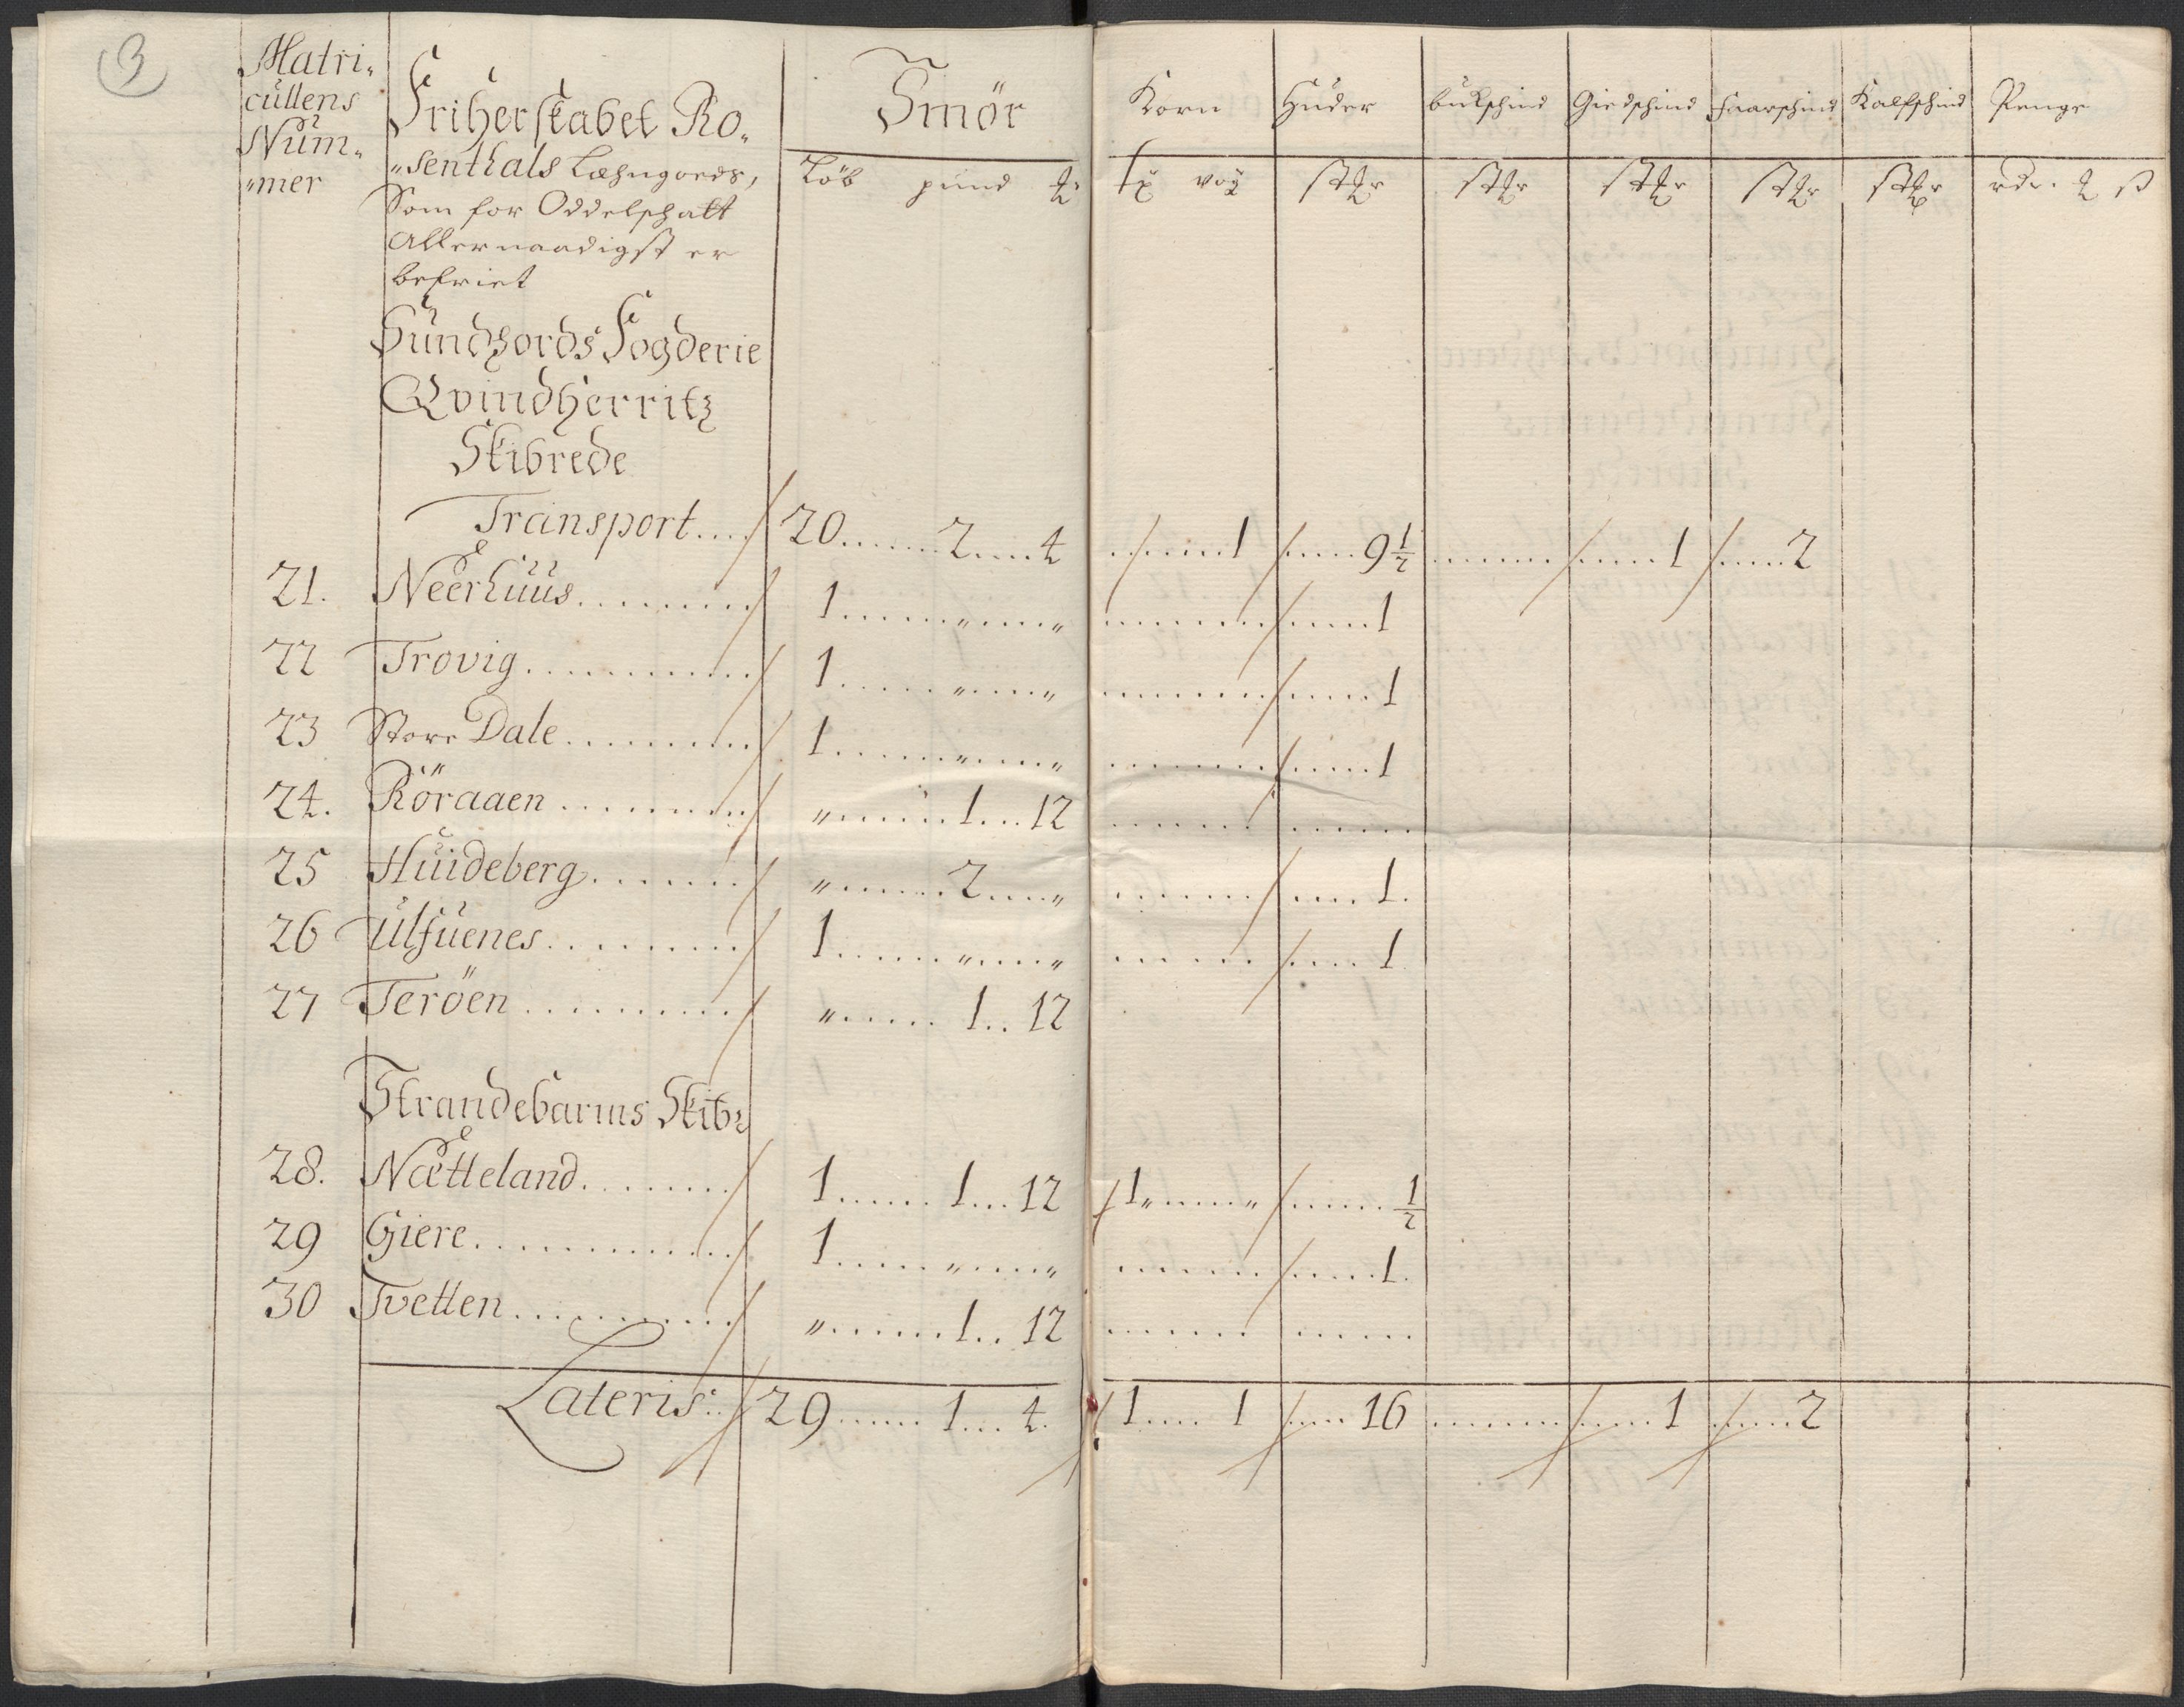 3
Matri„
cullens
Num„
„mer
Friherskabet Ro„
„senthals Læhngoeds,
Som for Oddelschatt
Allernaadigst er
befriet
Smör
Löb pund
Korn Huder bukschind Giedschind Faarschind Kalfschind Penge
Sundhords Fogderie
Qvindherritz
Skibrede
Transport.... 20......2....4 .....1 ....9½ ......1 ....2
21. Neerhuus......... 1......„....„ ........ ....1
22 Trovig.......... 1.....„....„ ........ ....1
23 Store Dale......... 1......„....„ ........ ....1
24. Röraaen ........ „......1...12 ...... ......
25 Huideberg....... „......2....„ ...... ....1.
26 Ulfuenes......... 1......„....„ ...... ....1
27 Teröen .......... „..... 1.. 12
Strandebarms Skibr
28. Nætteland........ 1...... 1... 12 1„.....„ ..... ½
29 Giere............. 1.....„....„ ...... .....1.
30 Tvetten.......... „......1.. 12 ...... ......
Lateris.. 29..... 1... 4. 1.... 1 .... 16 ......... 1 .... 2